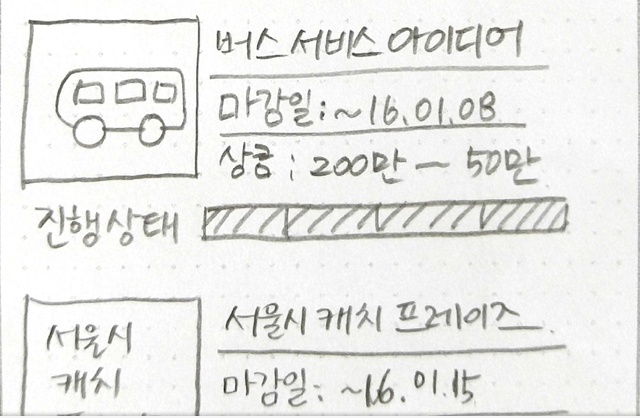 버스 서비스 아이디어
마감일: ~16.01.08
상콤: 200만 — 50만
진행상태
서울시
캐치
서울시 캐치 프레이즈
마감일: ~16.01.15